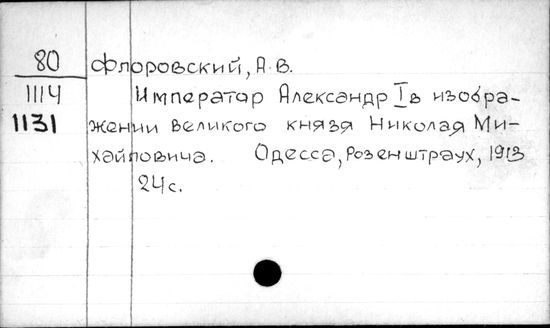 80 Флоровский, А.В.
1114 Император Александр I в изобра-
1131 жении великого князя Николая Ми-
хайловича. Одесса, Розенштраух, 1913
24с.